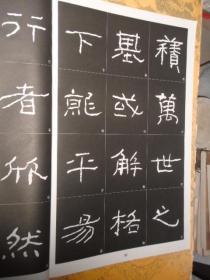 積萬世之
基或解格
下就平易
行者欣然